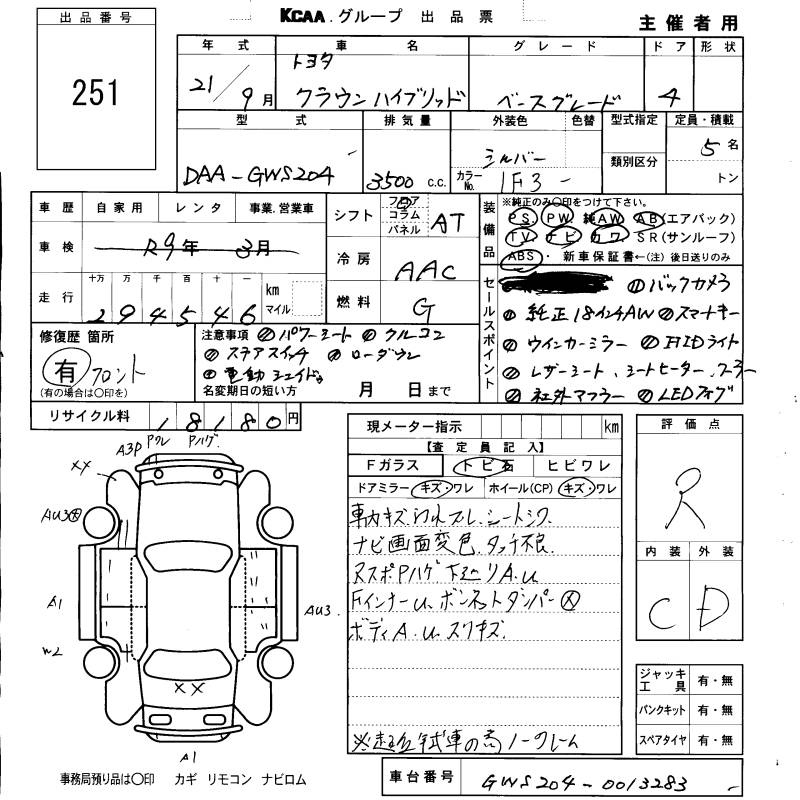 出品番号
251
KCAA.グループ 出品票
主催者用
年式 車名 グレード ドア 形状
21/9月 トヨタ クラウンハイブリッド ベースグレード 4
型式 排気量 外装色 色替 型式指定 定員・積載
DAA-GWS204 3500 c.c. シルバー カラーNo. 1F3 - 類別区分 5名 トン
車歴 自家用 レンタ 事業.営業車
車検 R9年 3月
走行 十万 万 千 百 十 一 km マイル
294546
シフト フロア コラム パネル AT
冷房 AAC
燃料 G
装備品 ※純正のみ○印をつけて下さい。
PS PW 純AW AB(エアバック)
TV ナビ カワ SR(サンルーフ)
ABS・新車保証書←(注)後日送りのみ
セールスポイント
バックカメラ
純正18インチAW スマートキー
ウインカーミラー HIDライト
レザーシート、シートヒーター、クーラー
社外マフラー LEDフォグ
修復歴 箇所
有 フロント
(有の場合は○印を)
注意事項 パワーシート クルコン
ステアスイッチ ローダウン
電動シェイド
名変期日の短い方 月 日 まで
リサイクル料 18180円
現メーター指示 km
【査定員記入】
Fガラス トビ石 ヒビワレ
ドアミラー キズ・ワレ ホイール(CP) キズ・ワレ
車内キズ.ワレ.スレ.シートシワ
ナビ画面変色.タッチ不良
RスポPハゲ 下廻りA.U
FインナーU.ボンネットダンパー
ボディA.U.スリキズ.
ノークレーム
評価点
R
内装 外装
C D
A3P Pクレ Pハゲ.
XX
AU3
A1
W2
AU3.
XX
A1
ジャッキ工具 有・無
パンクキット 有・無
スペアタイヤ 有・無
事務局預り品は○印 カギ リモコン ナビロム
車台番号 GWS204-0013283